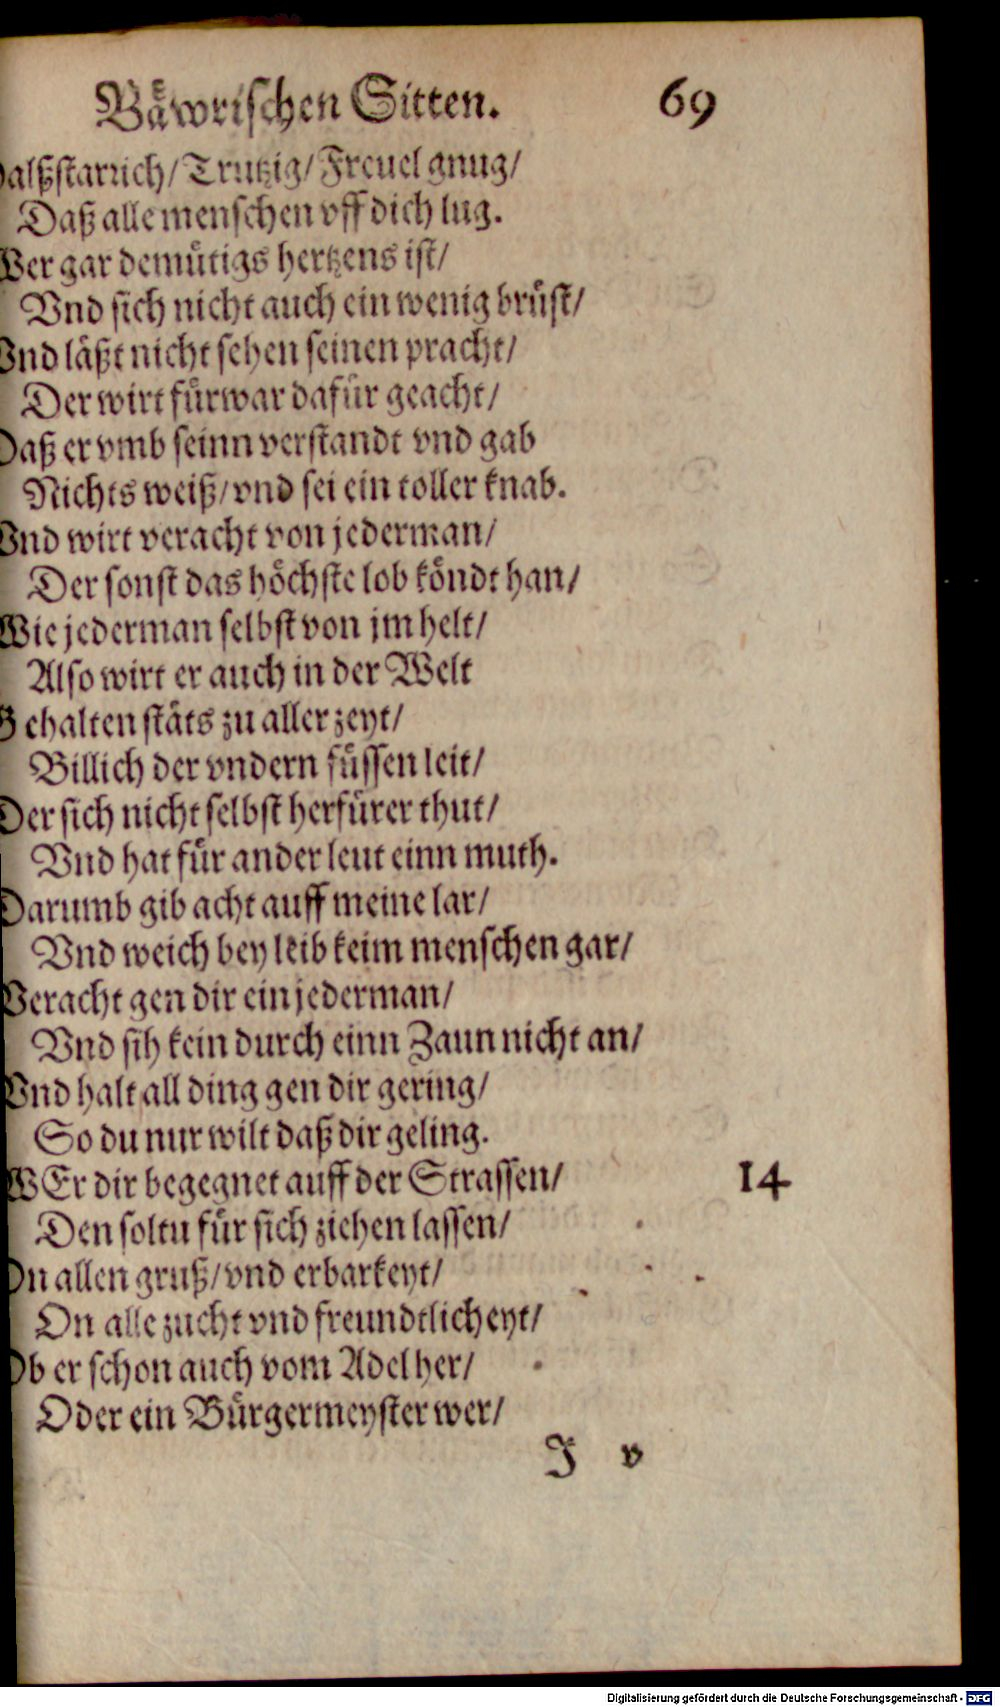 Bäwrischen Sitten. 69
Halßstarrich/ Trutzig/ Freuel gnug/
Daß alle menschen vff dich lug.
Wer gar demütigs hertzens ist/
Vnd sich nicht auch ein wenig brüst/
Vnd läßt nicht sehen seinen pracht/
Der wirt fürwar dafür geacht/
Daß er vmb seinn verstandt vnd gab
Nichts weiß/ vnd sei ein toller knab.
Vnd wirt veracht von jederman/
Der sonst das höchste lob köndt han/
Wie jederman selbst von jm helt/
Also wirt er auch in der Welt
Gehalten stäts zu aller zeyt/
Billich der vndern füssen leit/
Der sich nicht selbst herfürer thut/
Vnd hat für ander leut einn muth.
Darumb gib acht auff meine lar/
Vnd weich bey leib keim menschen gar/
Veracht gen dir ein jederman/
Vnd sih kein durch einn Zaun nicht an/
Vnd halt all ding gen dir gering/
So du nur wilt daß dir geling.
WEr dir begegnet auff der Strassen/ 14
Den soltu für sich ziehen lassen/
On allen gruß/ vnd erbarkeyt/
On alle zucht vnd freundtlicheyt/
Ob er schon auch vom Adel her/
Oder ein Bürgermeyster wer/
J v
Digitalisierung gefördert durch die Deutsche Forschungsgemeinschaft - DFG